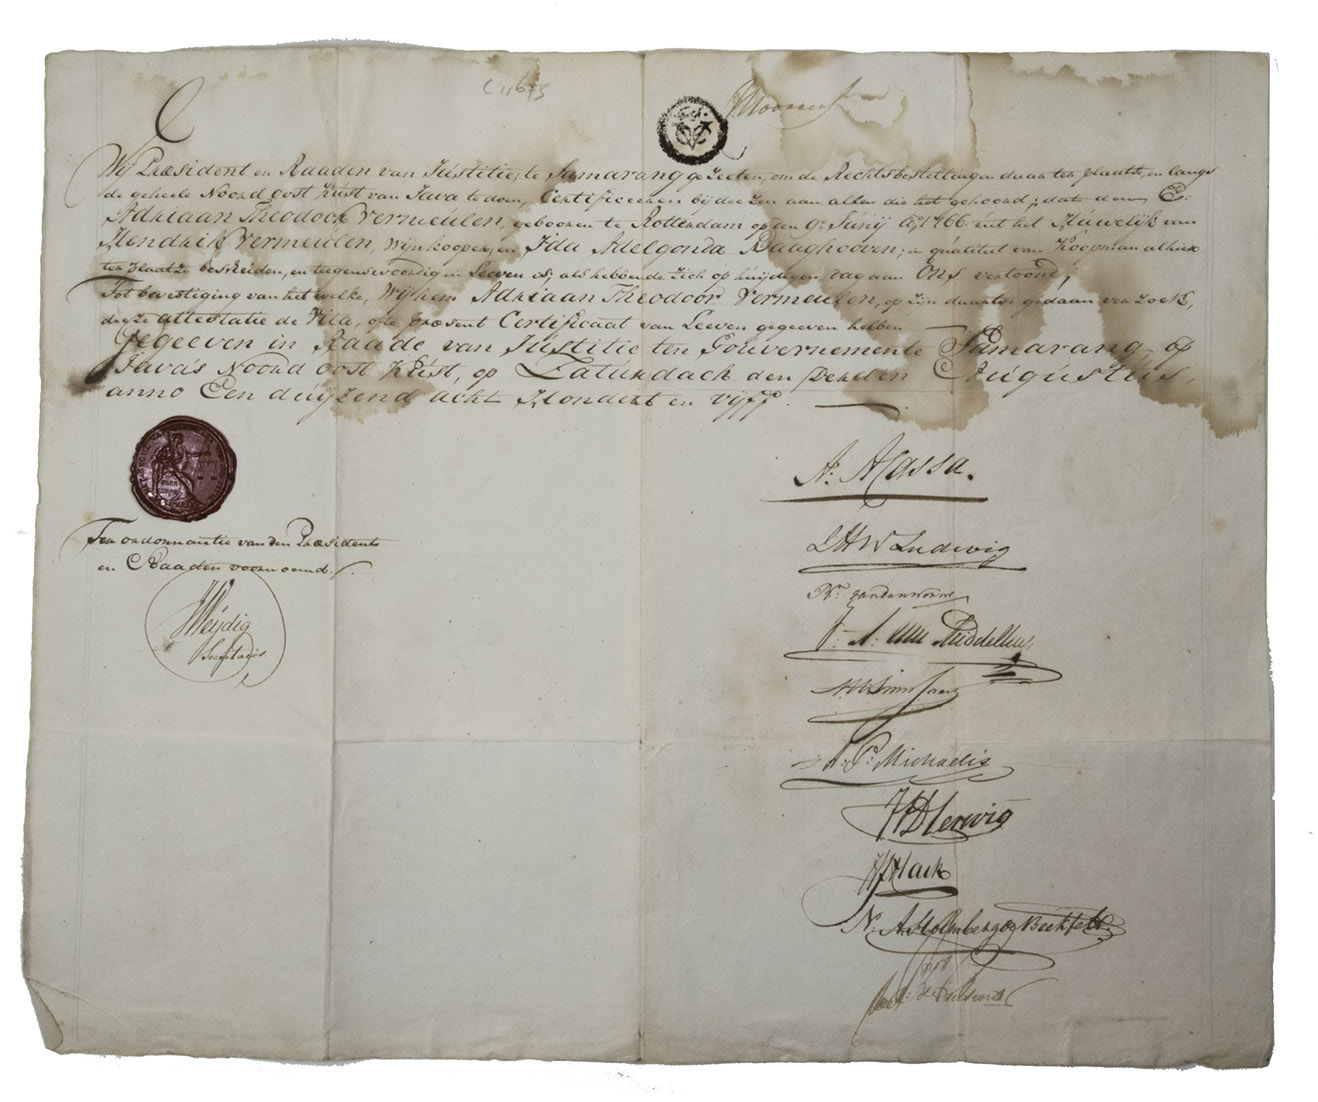 C 1163
Wij Præsident en Raaden van Justitie, te Samarang gezeeten, om de Rechtsbestellingen daar ter plaatse, en langs
de geheele Noord Oost Kust van Java te doen, Certificeeren bij deezen aan allen die het gehoord, dat den E:
Adriaan Theodoor Vermeulen, gebooren te Rotterdam op den 9e Junij Ao 1766 uit het Huwelijk van
Hendrik Vermeulen, Wijnkooper, en Ida Adelgonda Daaghooven; in qualiteit van Koopman alhier
ter plaatze bescheiden, en teegenswoordig in Leeven is; als hebbende zich op huijdigen dag aan Ons vertoond;
Tot bevestiging van het welke, Wij hem Adriaan Theodoor Vermeulen, op zijn daartoe gedaan verzoek,
deeze attestatie de Vita, ofte præsent Certificaat van Leeven gegeeven hebben
Gegeeven in Raade van Justitie ten Gouvernemente Samarang, op
Java's Noord Oost Kust, op Zaturdach den Derden Augustus,
anno Een duijzend acht Hondert en vijff.
A: A Cassa.
L H W Ludwig
J: A: van Middelkoop
A: P: Michaelis
J D Herwig
N: A. Holmberg de Beckfelt
Ter ordonnantie van den Præsident
en Raaden voornoemd.
Secretaris.